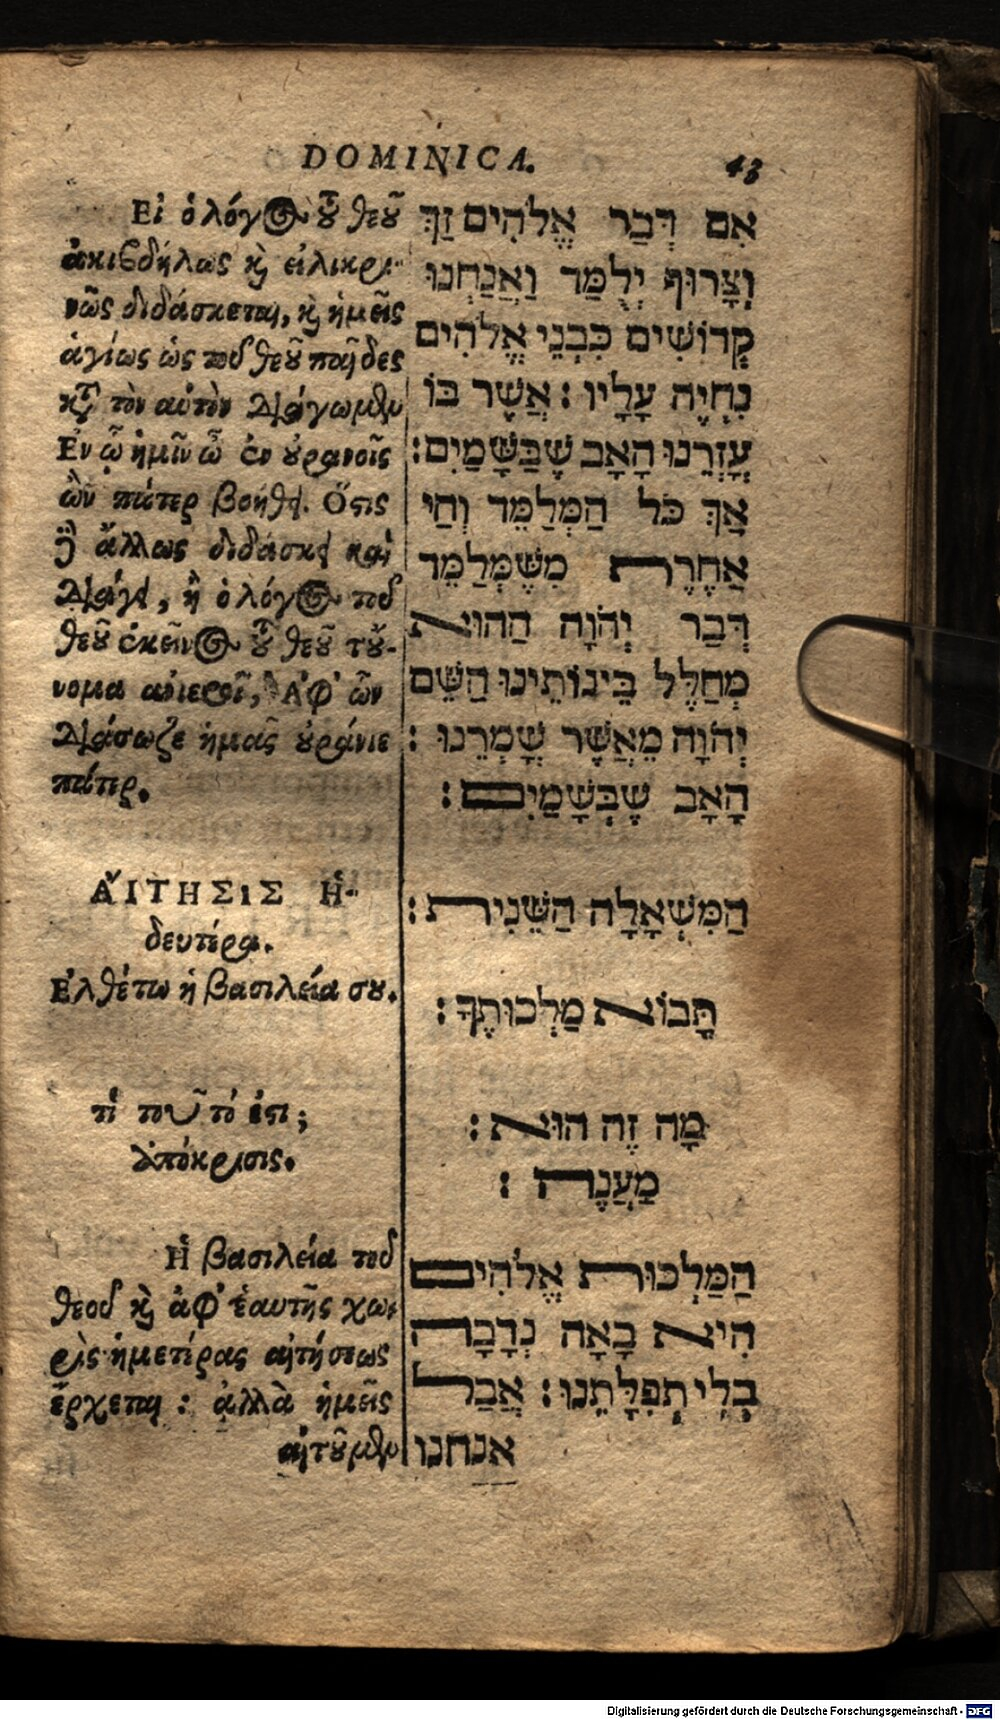 DOMINICA. 43
Εἰ ὁ λόγος τοῦ θεοῦ
ἀκιβδήλως καὶ εἰλικρι-
νῶς διδάσκεται, καὶ ἡμεῖς
ἁγίως ὡς τοῦ θεοῦ παῖδες
κατὰ τὸν αὐτὸν διάγωμεν
Ἐν ᾧ ἡμῖν ὦ ἐν οὐρανοῖς
ὢν πάτερ βοήθει. Ὅστις
δὲ ἄλλως διδάσκει καὶ
διάγει, ἢ ὁ λόγος τοῦ
θεοῦ ἐκεῖνος τοῦ θεοῦ τοὔ-
νομα ἀνιεροῖ, Ἀφ' ὧν
διάσωζε ἡμᾶς οὐράνιε
πάτερ.
ΑἼΤΗΣΙΣ Ἡ
δευτέρα.
Ἐλθέτω ἡ βασιλεία σου.
τί τοῦτό ἐστι;
ἀπόκρισις.
Ἡ βασιλεία τοῦ
θεοῦ καὶ ἀφ' ἑαυτῆς χω-
ρὶς ἡμετέρας αἰτήσεως
ἔρχεται: ἀλλὰ ἡμεῖς
αἰτοῦμεν
אִם דְּבַר אֱלֹהִים זַךְ
וְצָרוּף יְלֻמַּד וַאֲנַחְנוּ
קְדוֹשִׁים כִּבְנֵי אֱלֹהִים
נִחְיֶה עָלָיו: אֲשֶׁר בּוֹ
עָזְרֵנוּ הָאָב שֶׁבַּשָּׁמַיִם:
אַךְ כֹּל הַמְּלַמֵּד וְחַי
אַחֶרֶת מִשֶּׁמְּלַמֵּד
דְּבַר יְהֹוָה הַהוּא
מְחַלֵּל בֵּינוֹתֵינוּ הַשֵּׁם
יְהֹוָה מֵאֲשֶׁר שָׁמְרֵנוּ:
הָאָב שֶׁבְּשָׁמַיִם:
הַמִּשְׁאָלָה הַשֵּׁנִית:
תָּבוֹא מַלְכוּתֶךָ:
מָה זֶה הוּא:
מַעֲנֶה:
הַמַּלְכוּת אֱלֹהִים
הִיא בָאָה נְדָבָה
בְּלִי תְפִלָּתֵנוּ: אֲבַל
אנחנו
Digitalisierung gefördert durch die Deutsche Forschungsgemeinschaft - DFG